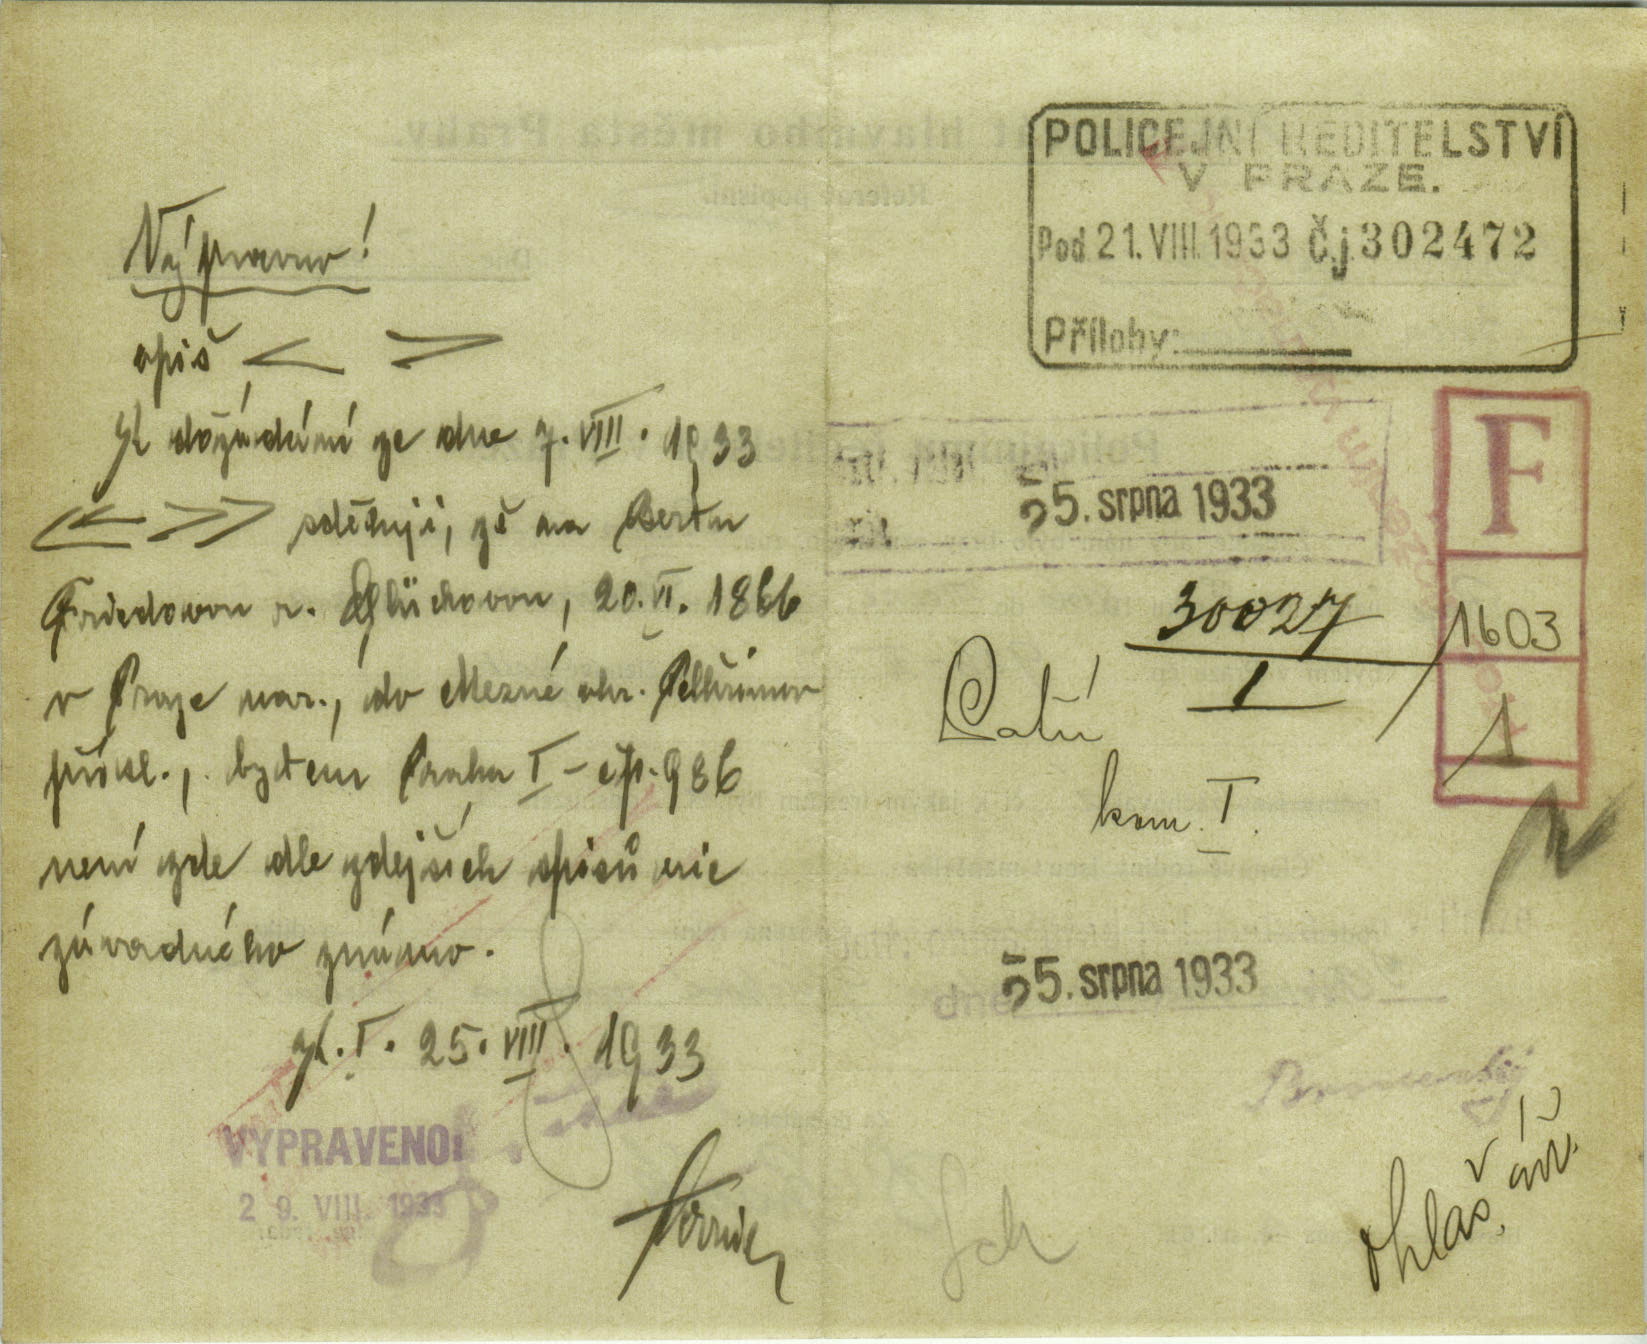 Výpravno!
opiš
K dožádání ze dne 7. VIII. 1933
sděluji, že na Bertu
Friedovou r. Glückovou, 20. VI. 1866
v Praze nar., do Mezné okr. Pelhřimov
přísl., bytem Praha I - čp. 986
není zde dle zdejších spisů nic
závadného známo.
K. I. 25. VIII. 1933
VYPRAVENO
29. VIII. 1933
POLICEJNÍ ŘEDITELSTVÍ
V PRAZE.
Pod 21. VIII. 1933 Č.j. 302472
Přílohy:
F
25. srpna 1933
30027
1
1603
1
Patří
kom. I.
25. srpna 1933
dne
Sch
ohlaš. úř.